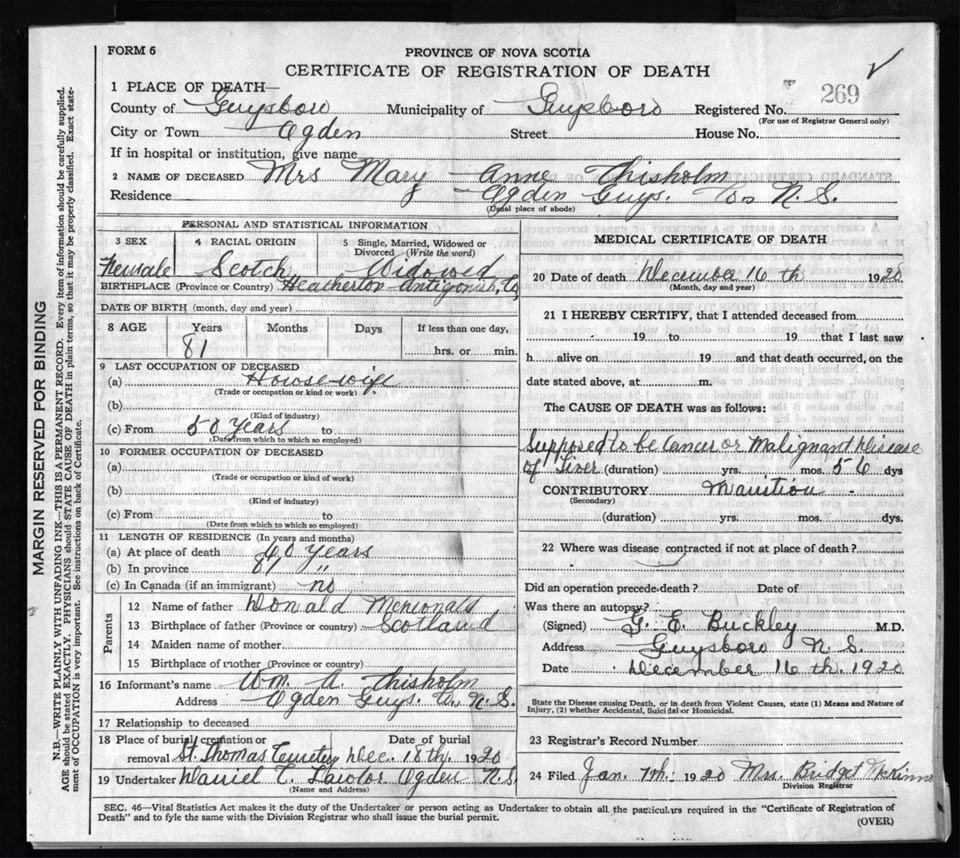 FORM 6
PROVINCE OF NOVA SCOTIA
CERTIFICATE OF REGISTRATION OF DEATH
1 PLACE OF DEATH—
269
County of Guysboro Municipality of Guysboro Registered No.
(For use of Registrar General only)
City or Town Ogden Street House No.
If in hospital or institution, give name
2 NAME OF DECEASED Mrs Mary Anne Chisholm
Residence Ogden Guys. Co N. S.
(Usual place of abode)
PERSONAL AND STATISTICAL INFORMATION
3 SEX 4 RACIAL ORIGIN 5 Single, Married, Widowed or Divorced (Write the word)
Female Scotch Widowed
BIRTHPLACE (Province or Country) Heatherton Antigonish, Co
DATE OF BIRTH (month, day and year)
8 AGE Years Months Days If less than one day,
81 hrs. or min.
9 LAST OCCUPATION OF DECEASED
(a) Housewife
(Trade or occupation or kind or work)
(b)
(Kind of industry)
(c) From 50 years to
(Date from which to which so employed)
10 FORMER OCCUPATION OF DECEASED
(a)
(Trade or occupation or kind of work)
(b)
(Kind of industry)
(c) From to
(Date from which to which so employed)
11 LENGTH OF RESIDENCE (In years and months)
(a) At place of death 60 years
(b) In province 81 "
(c) In Canada (if an immigrant) no
Parents
12 Name of father Donald McDonald
13 Birthplace of father (Province or country) Scotland
14 Maiden name of mother
15 Birthplace of mother (Province or country)
16 Informant's name Wm. A. Chisholm
Address Ogden Guys. Co. N. S.
17 Relationship to deceased
18 Place of burial, cremation or removal Date of burial
St. Thomas Cemetery Dec. 18th, 1920
19 Undertaker Daniel C. Lawlor Ogden N. S.
(Name and Address)
MEDICAL CERTIFICATE OF DEATH
20 Date of death December 16 th 1920
(Month, day and year)
21 I HEREBY CERTIFY, that I attended deceased from
19 to 19 that I last saw
h alive on 19 and that death occurred, on the
date stated above, at m.
The CAUSE OF DEATH was as follows:
Supposed to be Cancer or Malignant Disease
of Liver (duration) yrs. mos. 56 dys
CONTRIBUTORY
(Secondary)
(duration) yrs. mos. dys.
22 Where was disease contracted if not at place of death?
Did an operation precede death? Date of
Was there an autopsy?
(Signed) G. E. Buckley M.D.
Address Guysboro N. S.
Date December 16 th. 1920
State the Disease causing Death, or in death from Violent Causes, state (1) Means and Nature of
Injury, (2) whether Accidental, Suicidal or Homicidal.
23 Registrar's Record Number
24 Filed Jan. 7th. 1920 Mrs. Bridget
Division Registrar
SEC. 46—Vital Statistics Act makes it the duty of the Undertaker or person acting as Undertaker to obtain all the particulars required in the "Certificate of Registration of
Death" and to fyle the same with the Division Registrar who shall issue the burial permit.
(OVER)
MARGIN RESERVED FOR BINDING
N.B.—WRITE PLAINLY WITH UNFADING INK—THIS IS A PERMANENT RECORD. Every item of information should be carefully supplied.
AGE should be stated EXACTLY. PHYSICIANS should STATE CAUSE OF DEATH in plain terms, so that it may be properly classified. Exact state-
ment of OCCUPATION is very important. See instructions on back of Certificate.